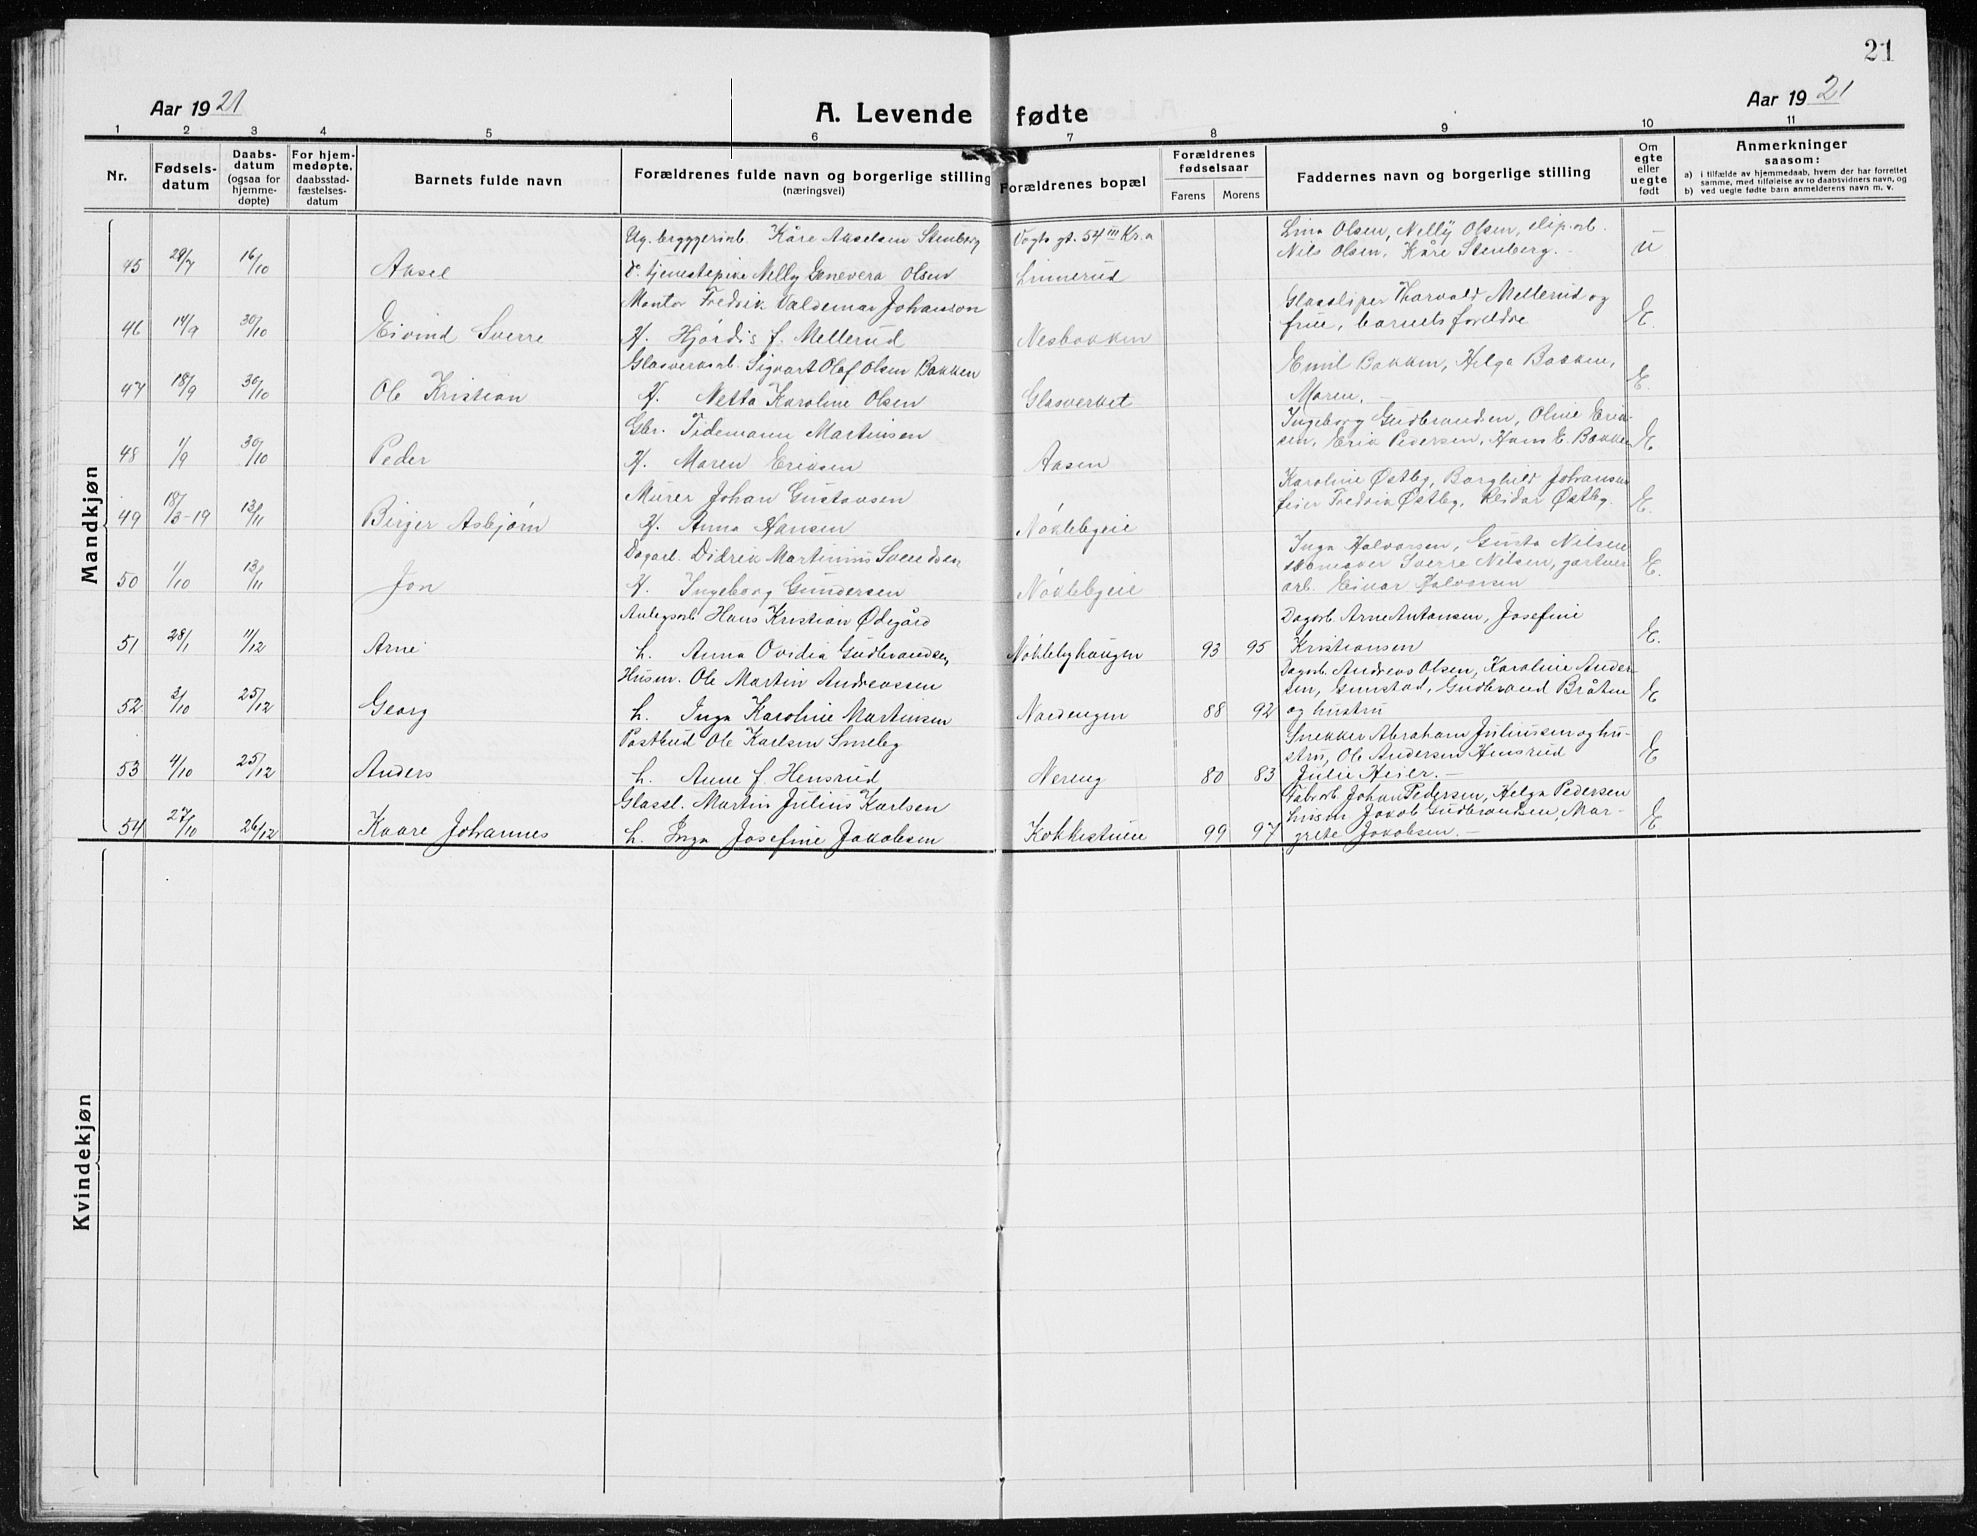 21
Aar 1921
A. Levende fødte
Aar 1921
1 2 3 4 5 6 7 8 9 10 11
Nr.
Fødselsdatum
Daabsdatum (ogsaa for hjemmedøpte)
For hjemmedøpte, daabsstadfæstelsesdatum
Barnets fulde navn
Forældrenes fulde navn og borgerlige stilling (næringsvei)
Forældrenes bopæl
Forældrenes fødselsaar
Farens Morens
Faddernes navn og borgerlige stilling
Om egte eller uegte født
Anmerkninger
saasom:
a) i tilfælde av hjemmedaab, hvem der har forrettet samme, med tilføielse av to daabsvidners navn, og
b) ved uegte fødte barn anmelderens navn m. v.
Mandkjøn
Ug. bryggeriarb. Kåre Akselsen Stenberg Vogts gt. 54 III Kr.a Lina Olsen, Nelly Olsen, slip.arb.
45 28/7 16/10 Aksel P. tjenestepike Nelly Genevera Olsen Linnerud Nils Olsen, Kåre Stenberg. – u
Montør Fredrik Valdemar Johanson Glassliper Harvald Mellerud og
46 14/9 30/10 Eivind Sverre H. Hjørdis f. Mellerud Nesbakken frue, barnets foreldre E.
Glasverksarb. Sigvart Olaf Olsen Bakken Emil Bakken, Helga Bakken,
47 18/9 30/10 Ole Kristian H. Netta Karoline Olsen Glasverket Moren. – E.
Gbr. Tidemann Martinsen Ingeborg Gudbrandsen, Oline Erik-
48 1/9 30/10 Peder H. Maren Eriksen Aasen sen, Erik Pedersen, Hans E. Bakken E
Murer Johan Gustavsen Karoline Østby, Borghild Johansen
49 18/3-19 13/11 Birger Asbjørn H. Anna Hansen Nøklebyeie feier Fredrik Østby, Reidar Østby. E.
Dagarb. Didrik Martinius Svendsen Inga Halvorsen, Gusta Nilsen
50 1/10 13/11 Jon H. Ingeborg Gundersen Nøklebyeie skomaker Sverre Nilsen, gartner
arb. Einar Halvorsen E.
Anlegsarb. Hans Kristian Ødegård Dagarb. Arne Antonsen, Josefine
51 28/1 11/12 Arne h. Anna Ovidia Gudbrandsen Nøklebyhaugen 93 95 Kristiansen E.
Husm. Ole Martin Andreassen Dagarb. Andreas Olsen, Karoline Ander-
sen, Grinstad, Gudbrand Bråten
52 3/10 25/12 Georg h. Inga Karoline Martinsen Nordengen 88 92 og hustru E
Postbud Ole Karlsen Smeby Snekker Abraham Juliussen og hu-
stru, Ole Andersen Hensrud
53 4/10 25/12 Anders h. Anne f. Hensrud Nereng 80 83 Julie Heier. – E
Glassl. Martin Julius Karlsen Fabarb. Johan Pedersen, Helga Pedersen
husm Jakob Gudbrandsen, Mar-
54 27/10 26/12 Kaare Johannes h. Inga Josefine Jakobsen Kokkestuen 99 97 grete Jakobsen. – E
Kvindekjøn